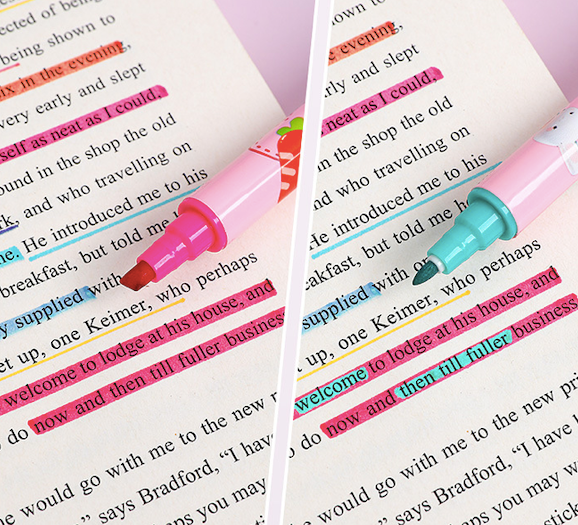 ected of being
being shown to
ix in the evening,
very early and slept
self as neat as I could,
ound in the shop the old
rk, and who travelling on
ne. He introduced me to his
breakfast, but told me h
y supplied with
et up, one Keimer, who perhaps
welcome to lodge at his house, and
do now and then till fuller business
e would go with me to the new
," says Bradford, "I have
ps you may
own to
e evening,
arly and slept
neat as I could,
in the shop the old
nd who travelling on
He introduced me to his
eakfast, but told me h
supplied with
t up, one Keimer, who perhaps
welcome to lodge at his house, and
do now and then till fuller business
would go with me to the new pri
," says Bradford, "I have
aps you may
stick